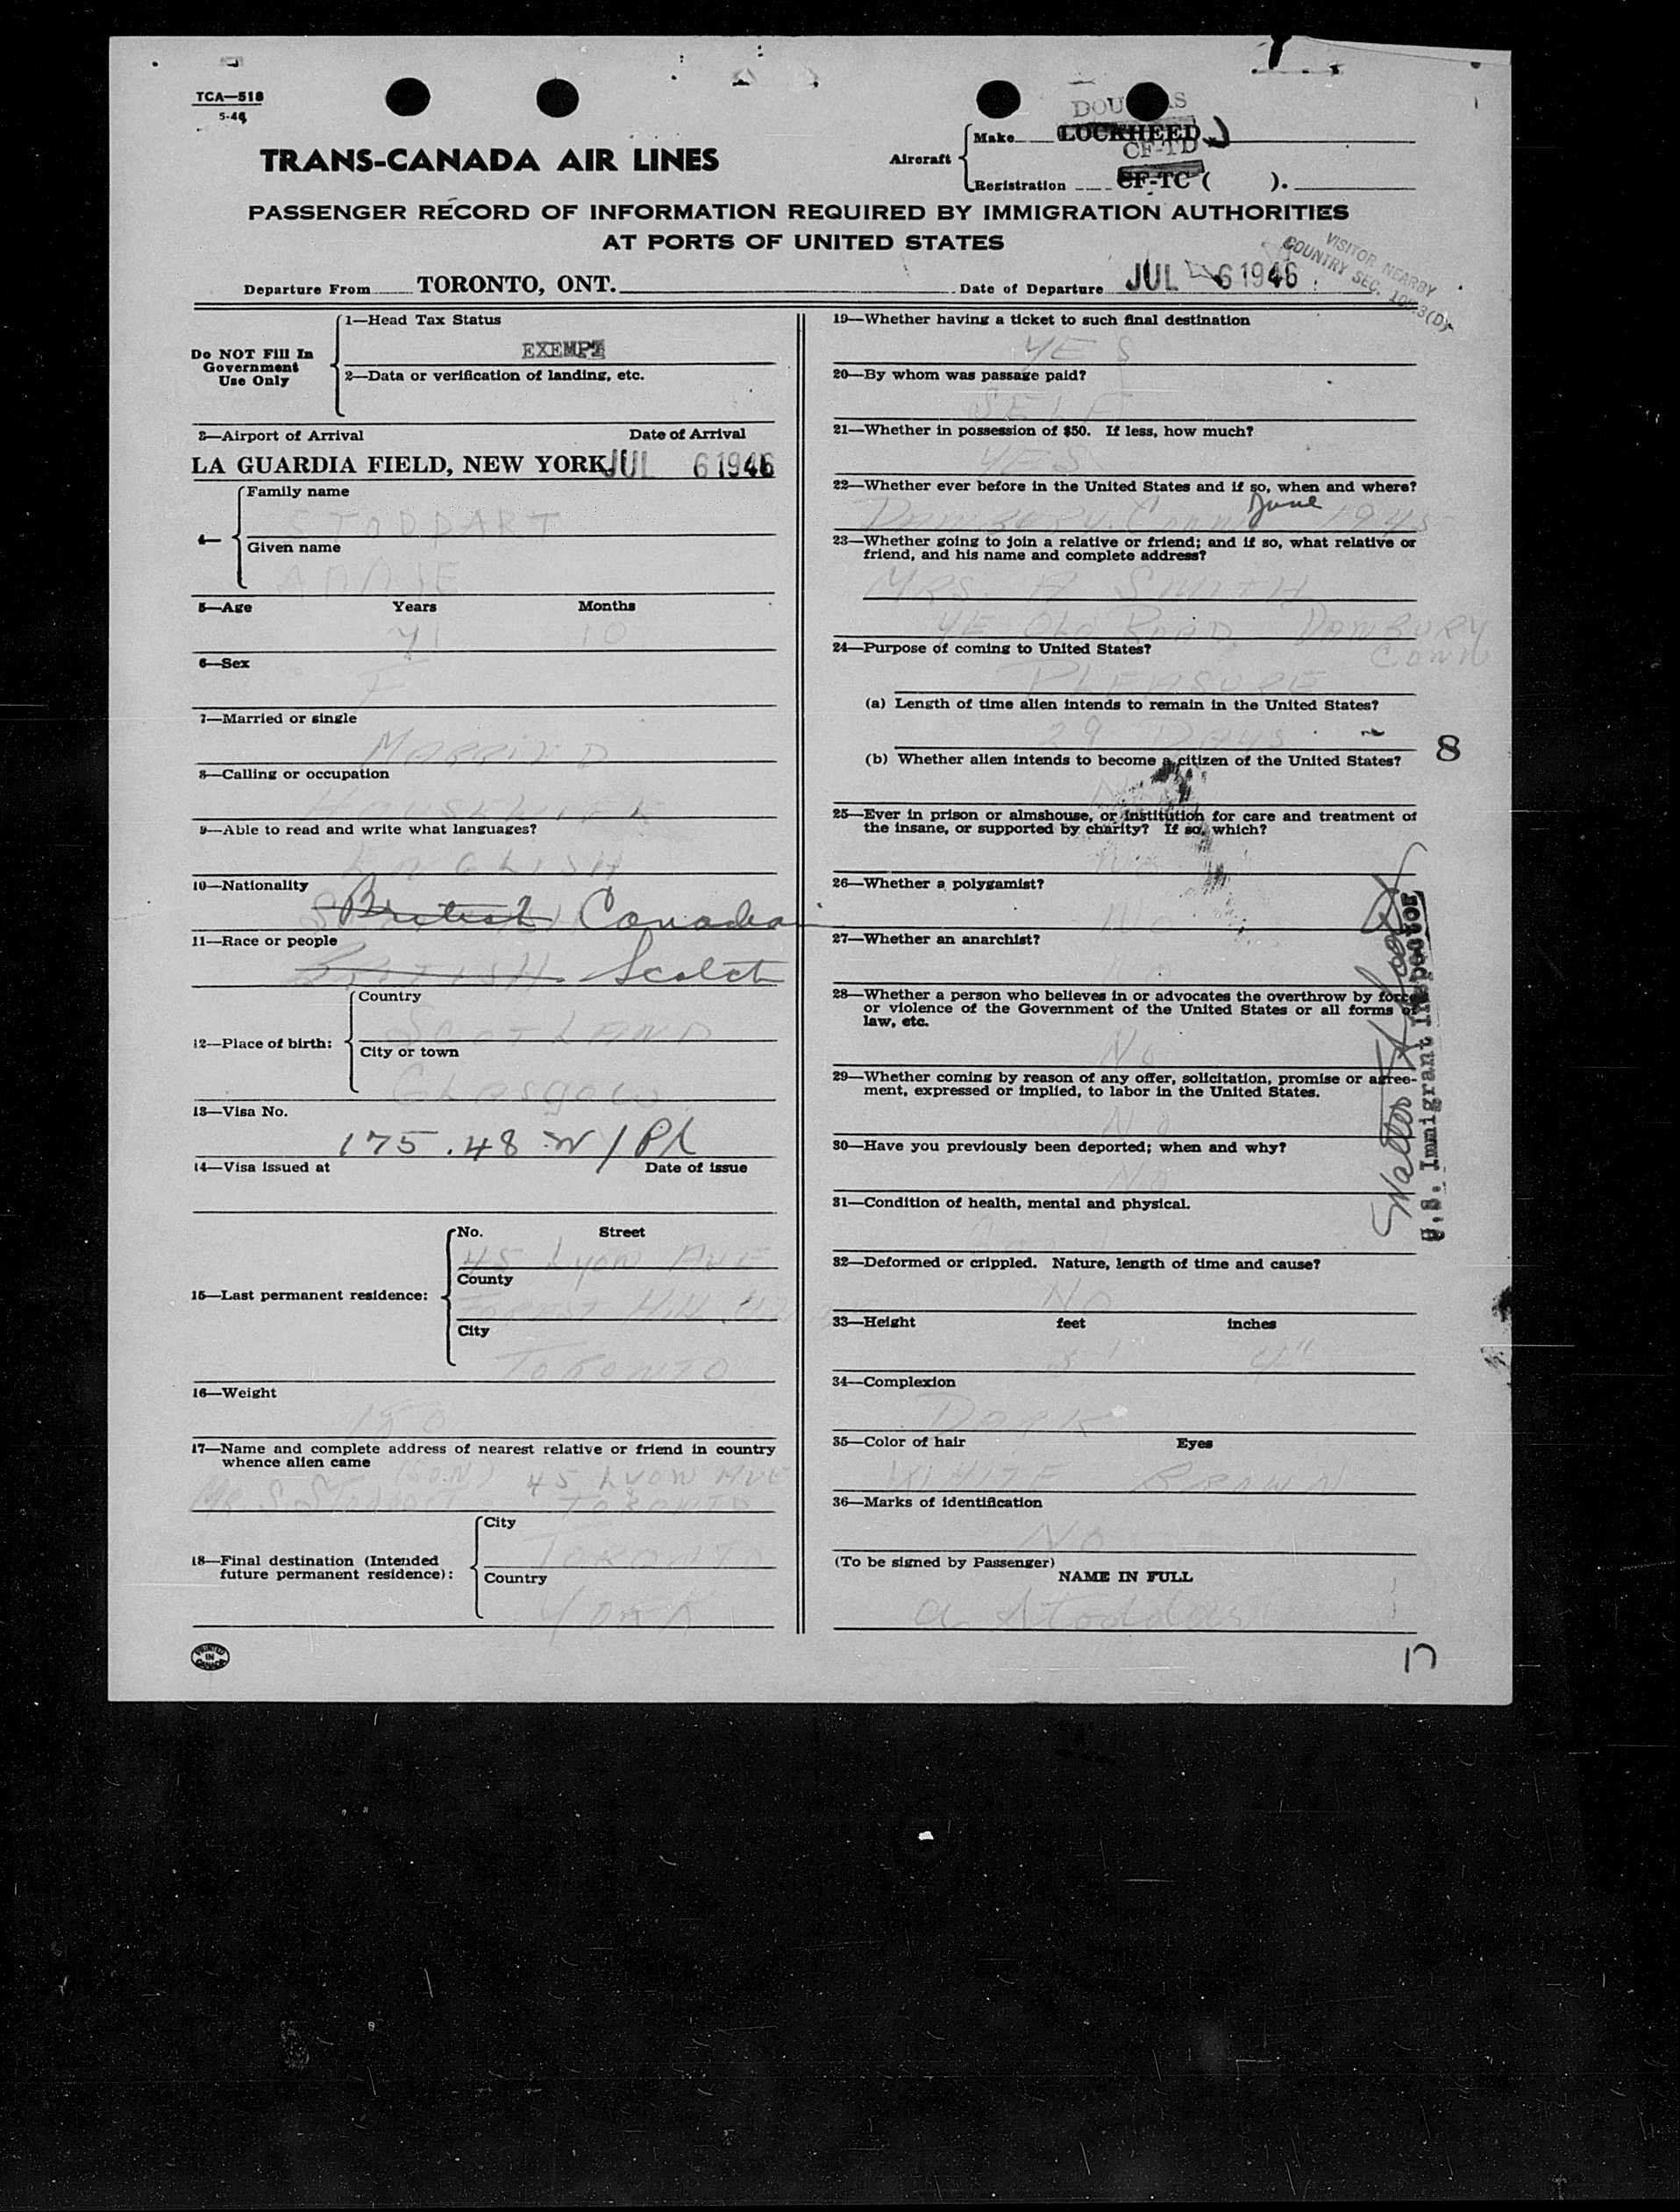 TCA—518
5-46
DOUGLAS
Make LOCKHEED
CF-TD
Aircraft
Registration CF-TC ( ).
TRANS-CANADA AIR LINES
PASSENGER RECORD OF INFORMATION REQUIRED BY IMMIGRATION AUTHORITIES
AT PORTS OF UNITED STATES
VISITOR NEARBY
COUNTRY SEC.
Departure From TORONTO, ONT. Date of Departure JUL 6 1946
Do NOT Fill In
Government
Use Only
1—Head Tax Status
EXEMPT
2—Data or verification of landing, etc.
3—Airport of Arrival Date of Arrival
LA GUARDIA FIELD, NEW YORK JUL 6 1946
4—
Family name
STODDART
Given name
ANNIE
5—Age Years Months
71 10
6—Sex
F
7—Married or single
MARRIED
8—Calling or occupation
HOUSEWIFE
9—Able to read and write what languages?
ENGLISH
10—Nationality
British Canadian
11—Race or people
BRITISH Scotch
12—Place of birth:
Country
SCOTLAND
City or town
GLASGOW
13—Visa No.
175.48
14—Visa issued at Date of issue
15—Last permanent residence:
No. Street
45 Lyon AVE
County
FOREST HILL
City
TORONTO
16—Weight
180
17—Name and complete address of nearest relative or friend in country
whence alien came
(SON) 45 LYON AVE
MR S Stoddart TORONTO
18—Final destination (Intended
future permanent residence):
City
TORONTO
Country
YORK
19—Whether having a ticket to such final destination
YES
20—By whom was passage paid?
SELF
21—Whether in possession of $50. If less, how much?
YES
22—Whether ever before in the United States and if so, when and where?
DANBURY. CONN June 1945
23—Whether going to join a relative or friend; and if so, what relative or
friend, and his name and complete address?
MRS. A SMITH
YE OLD ROAD DANBURY
CONN
24—Purpose of coming to United States?
PLEASURE
(a) Length of time alien intends to remain in the United States?
29 DAYS
(b) Whether alien intends to become a citizen of the United States?
8
No
25—Ever in prison or almshouse, or institution for care and treatment of
the insane, or supported by charity? If so, which?
No
26—Whether a polygamist?
No
27—Whether an anarchist?
28—Whether a person who believes in or advocates the overthrow by force
or violence of the Government of the United States or all forms of
law, etc.
No
29—Whether coming by reason of any offer, solicitation, promise or agree-
ment, expressed or implied, to labor in the United States.
No
30—Have you previously been deported; when and why?
No
31—Condition of health, mental and physical.
32—Deformed or crippled. Nature, length of time and cause?
No
33—Height feet inches
5' 4"
34—Complexion
DARK
35—Color of hair Eyes
WHITE BROWN
36—Marks of identification
NO
(To be signed by Passenger)
NAME IN FULL
A Stoddart
U.S. Immigrant Inspector
PRINTED
IN
CANADA